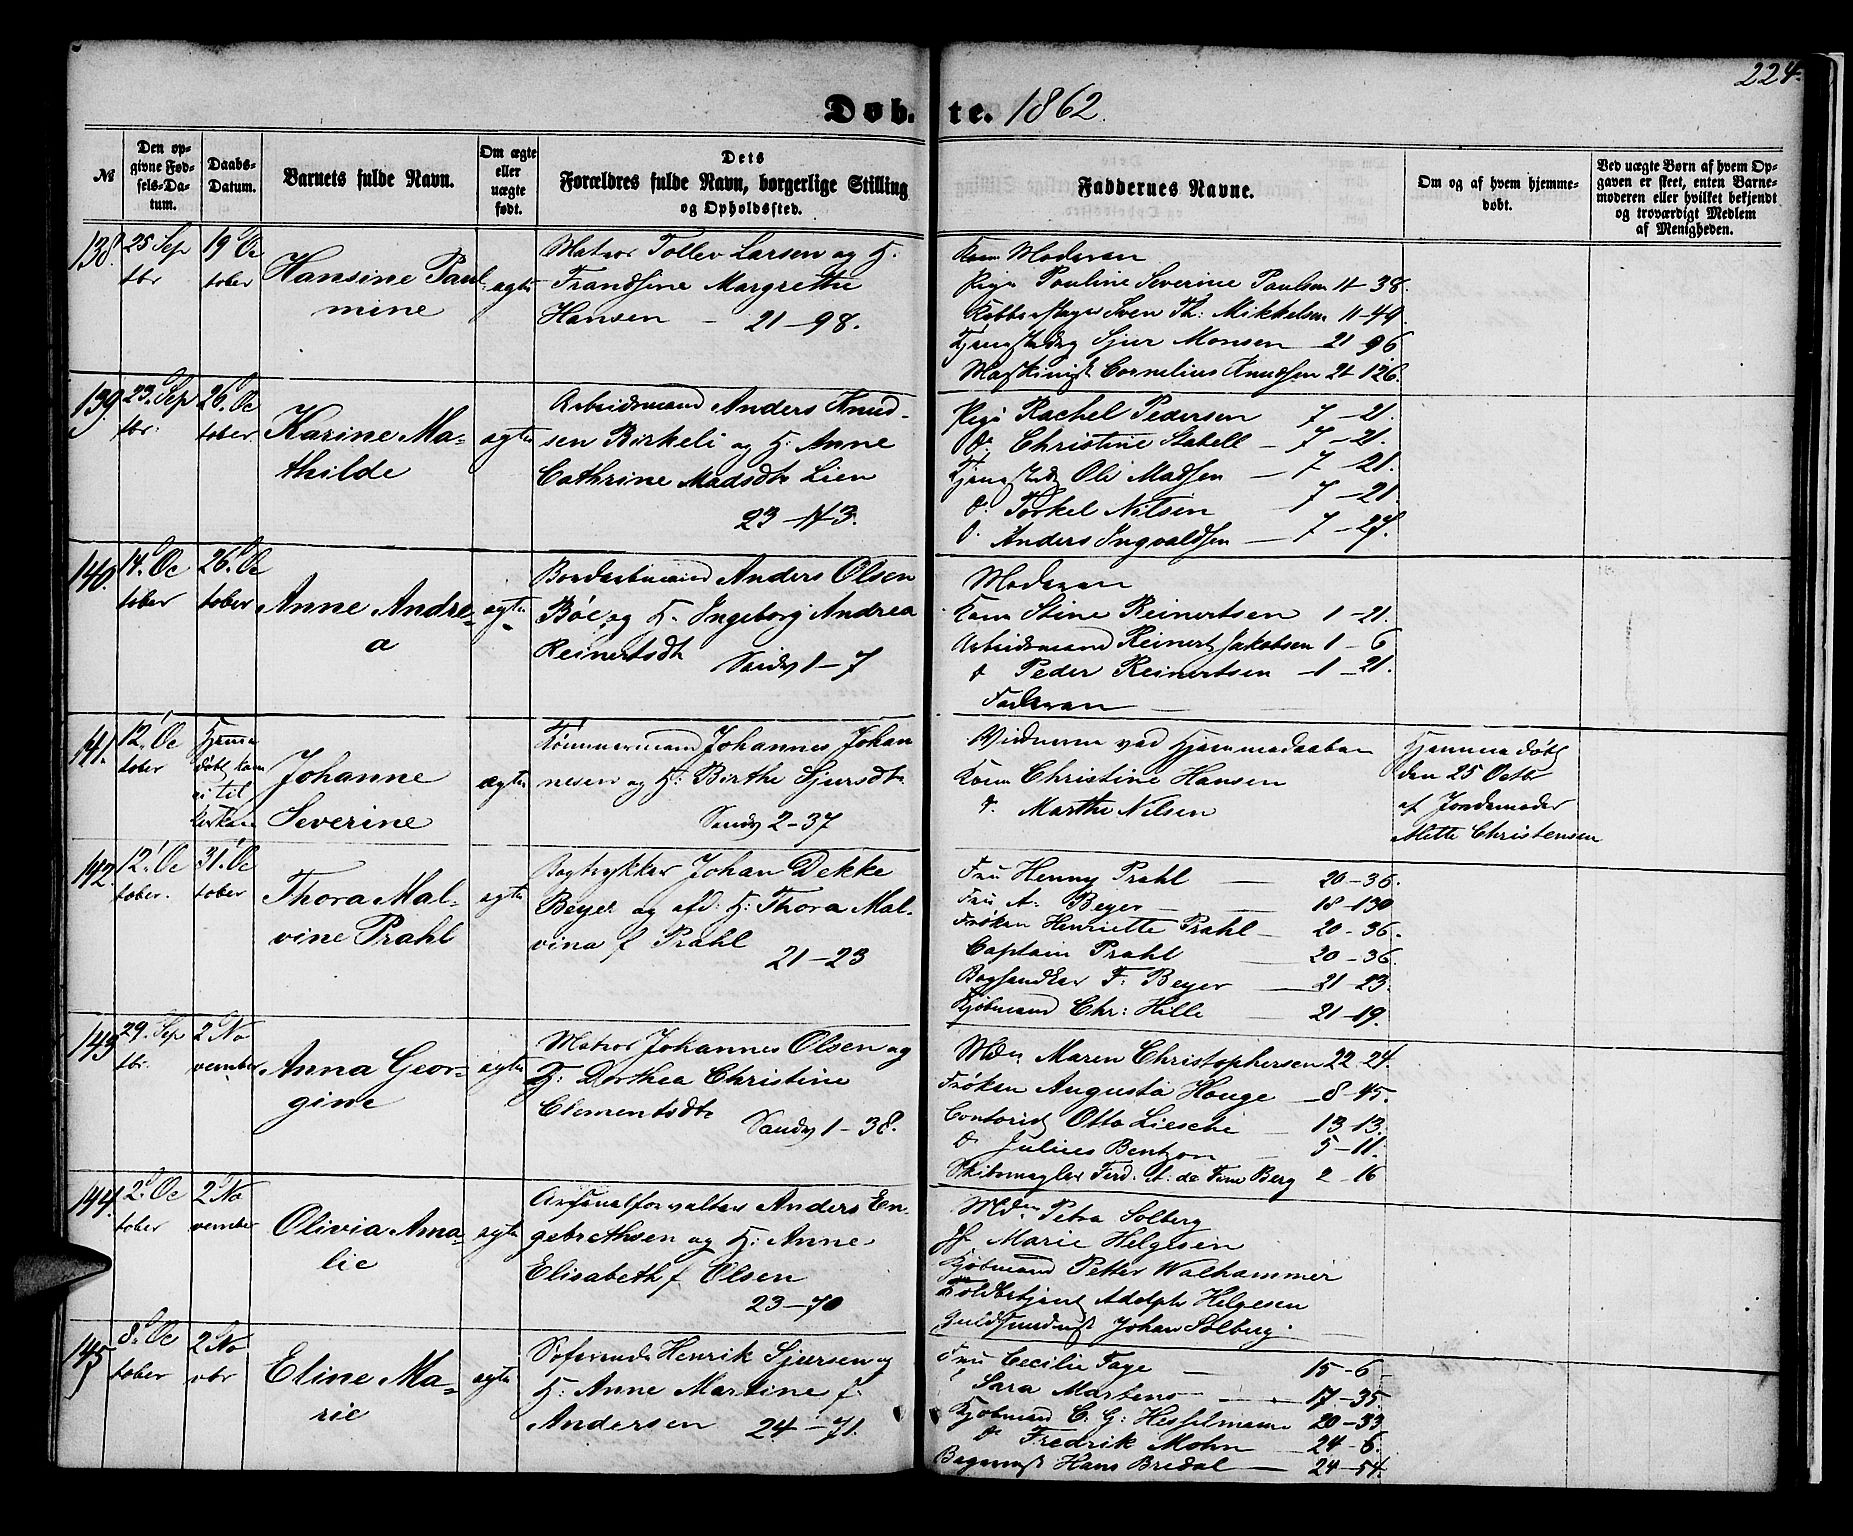 224.
Døb.te. 1862.
№
Den op-
givne Fød-
sels-Da-
tum.
Daabs-
Datum.
Barnets fulde Navn.
Om ægte
eller
uægte
født.
Dets
Forældres fulde Navn, borgerlige Stilling
og Opholdssted.
Faddernes Navne.
Om og af hvem hjemme-
døbt.
Ved uægte Børn af hvem Op-
gaven er skeet, enten Barne-
moderen eller hvilket bekjendt
og troværdigt Medlem
af Menigheden.
138.
25 Sep
tbr
19 Oc
tober
Hansine Paul
mine
ægte
Matros Tollev Larsen og H.
Frandsine Margrethe
Hansen - 21-98.
Kone Moderen
Pige Pauline Severine Paulsen 11-38.
Sven Th: Mikkelsen 11-49.
Sjur Monsen 21 96
Maskinist Cornelius Knudsen 21 126.
139.
23. Sep
tbr.
26. Oc
tober
Karine Ma-
thilde
ægte
Arbeidsmand Anders Knud-
sen Birkeli og H: Anne
Cathrine Madsdtr Lien
23-113.
Pige Rachel Pedersen 7-21.
do. Christine Stabell - 7-21.
Ole Madsen - 7-21.
do. Torkel Nilsen 7-21
do. Anders Ingvaldsen - 7-27.
140.
14. Oc
tober
26. Oc
tober
Anne Andre-
a
ægte
Anders Olsen
Böe og H. Ingeborg Andrea
Reinertsdtr Sandv 1-7
Moderen
Kone Stine Reinertsen 1-21.
Arbeidsmand Reinert Jakobsen 1-6
do Peder Reinertsen -1-21.
Faderen
141.
12. Oc
tober
Hjemme
døbt kom
ei til
Kirken
Johanne
Severine
ægte
Tömmermand Johannes Johan
nesen og H: Birthe Sjursdtr
Sandv 2-37
Vidnerne ved Hjemmedaaben
Kone Christine Hansen
do. Marthe Nilsen
Hjemme døbt
den 25 Octbr
af Jordemoder
Mette Christensen
142.
12. Oc
tober.
31. Oc
tober
Thora Mal-
vine Prahl
ægte
Bogtrykker Johan Dekke
Beyer og afd: H: Thora Mal-
vina f Prahl
21-23
Fru Henny Prahl - 20-36.
Fru A. Beyer - 18-130
Frøken Henriette Prahl - 20-36.
Captain Prahl 20-36.
Boghandler F. Beyer - 21-23.
Kjøbmand Chr: Hille - 21-19.
143
29. Sep
tbr.
2 No
vember
Anna Geor-
gine
ægte
Matros Johannes Olsen og
H: Dorthea Christine
Clementsdtr Sandv 1-38.
Mdm Maren Christophersen 22-24.
Frøken Augusta Houge -8-45.
Contorist Otto Liesche - 13-13.
do Julius Bentzon 5-11.
Skibsmægler Ferd. A. de Berg 2-16
144.
2. Oc
tober
2 No
vember
Olivia Ama-
lie
ægte
Arsenalforvalter Anders En-
gebrethsen og H: Anne
Elisabeth f Olsen
23-70
Mdm Petra Solberg
Jf Marie Helgesen
Kjøbmand Petter Walhammer
Toldbetjent Adolph Helgesen
Guldsmedsv Johan Solberg
145
8. Oc
tober
2 No
vbr
Eline Ma-
rie
ægte
Søfarende Henrik Sjursen og
H: Anne Martine f.
Andersen 24-71.
Fru Cecilie Faye - 15-6
" Sara Martens - 17-35.
Kjøbmand C. G: Hesselmann 20-33
do Fredrik Mohn - 24-6.
Hans Bredal - 24-54.